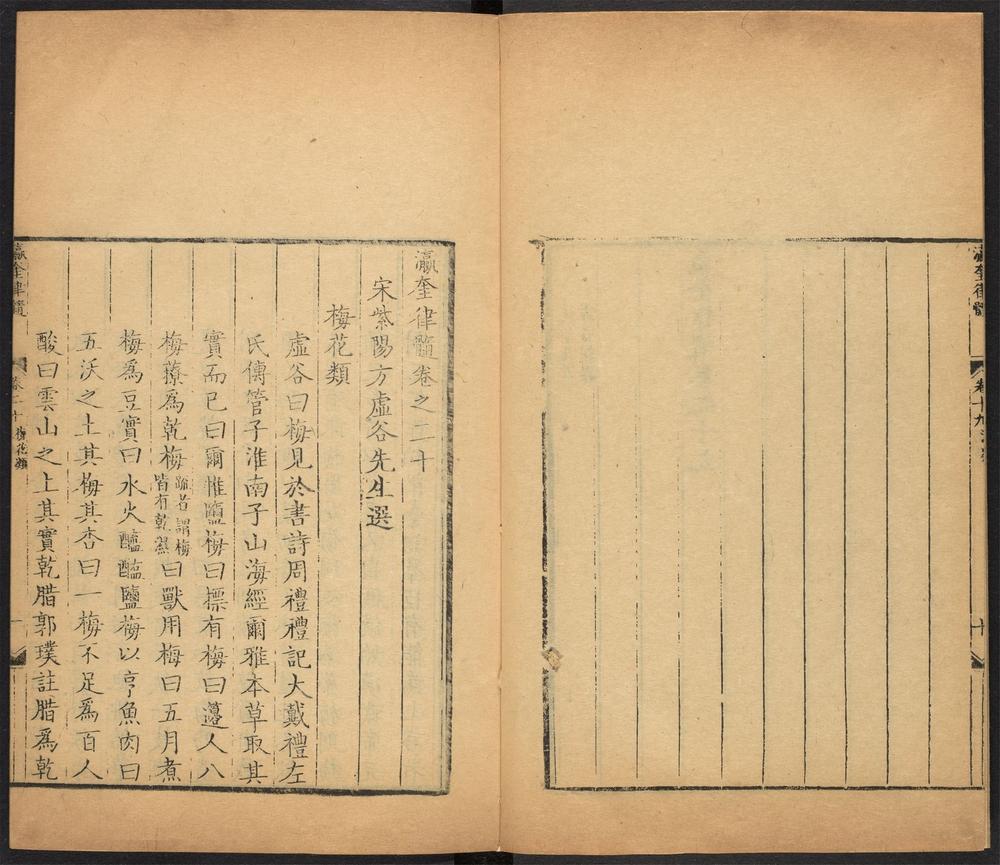 瀛奎律髓
卷十九
十
瀛奎律髓卷之二十
宋紫陽方虛谷先生選
梅花類
虛谷曰梅見於書詩周禮禮記大戴禮左
氏傳管子淮南子山海經爾雅本草取其
實而已曰爾惟鹽梅曰摽有梅曰籩人八
梅䕩爲乾梅疏者謂梅皆有乾濕曰獸用梅曰五月煮
梅爲豆實曰水火醯醢鹽梅以亨魚肉曰
五沃之土其梅其杏曰一梅不足爲百人
酸曰雲山之上其實乾腊郭璞註腊爲乾
瀛奎律髓
卷二十 梅花類
一